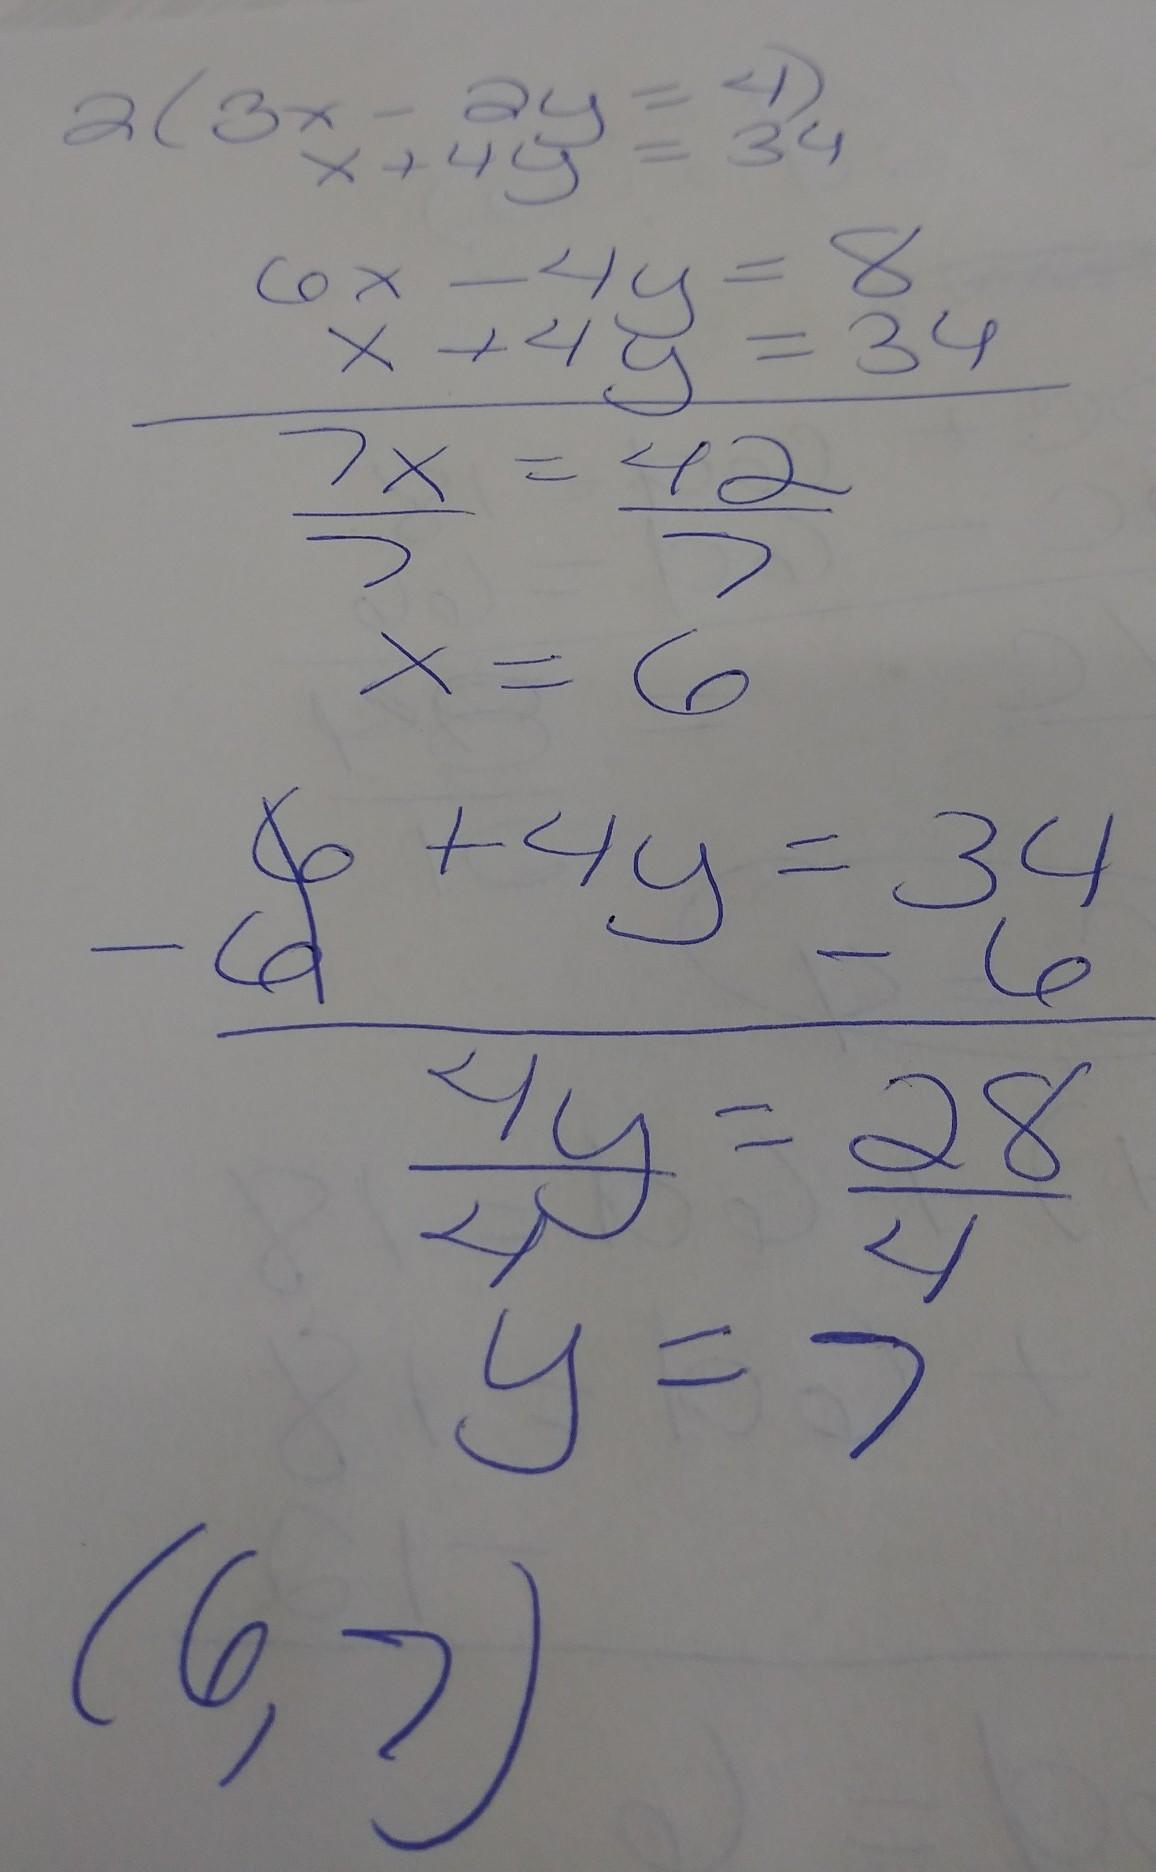 2(3x - 2y = 4)
x + 4y = 34
6x - 4y = 8
x + 4y = 34
7x = 42
7 7
x = 6
6 + 4y = 34
- 6 - 6
4y = 28
4 4
y = 7
(6, 7)